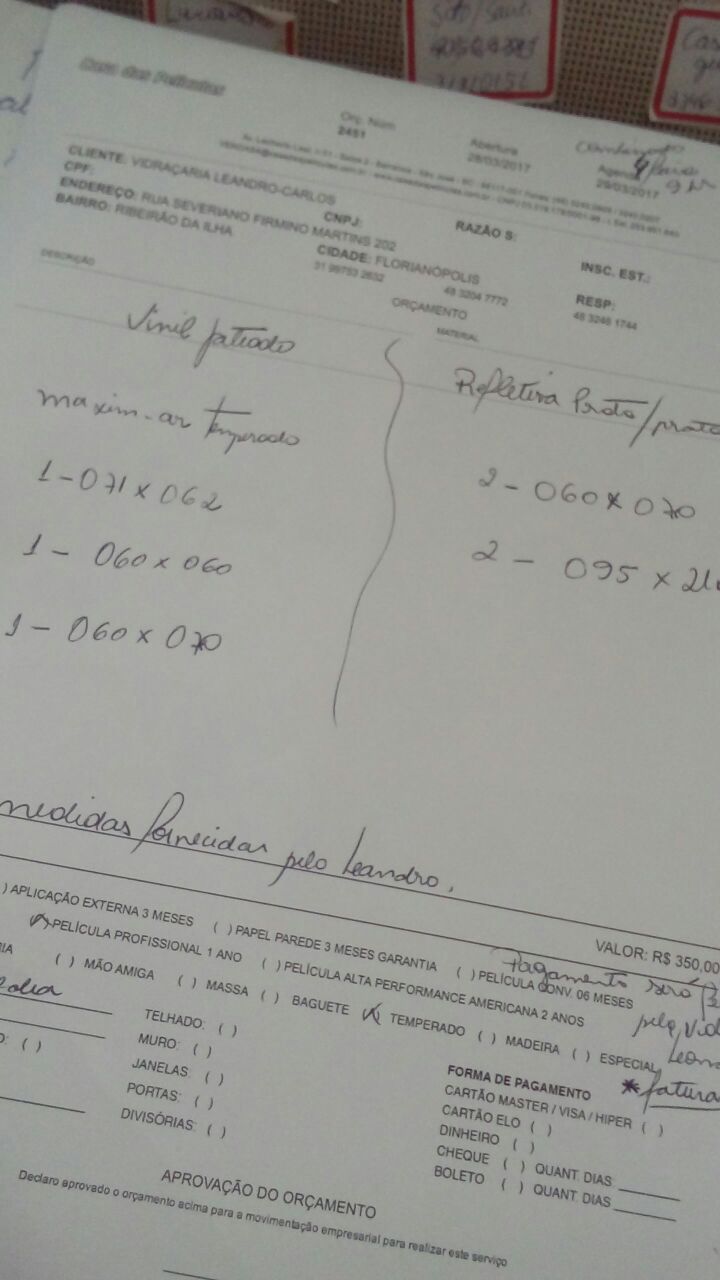 Casa das Películas
Orç. Num
2451
Abertura
28/03/2017
Agenda
29/03/2017
CLIENTE: VIDRAÇARIA LEANDRO-CARLOS
CPF:
CNPJ:
RAZÃO S:
INSC. EST.:
ENDEREÇO: RUA SEVERIANO FIRMINO MARTINS 202
BAIRRO: RIBEIRÃO DA ILHA
CIDADE: FLORIANÓPOLIS
RESP:
48 3204 7772
48 3248 1744
ORÇAMENTO
DESCRIÇÃO
MATERIAL
Vinil jateado
maxim-ar Temperado
1-071 x 062
1 - 060 x 060
1 - 060 x 070
Refletiva Prata/prata
2 - 060 x 070
2 - 095 x
medidas fornecidas pelo Leandro.
VALOR: R$ 350,00
) APLICAÇÃO EXTERNA 3 MESES ( ) PAPEL PAREDE 3 MESES GARANTIA ( ) PELÍCULA CONV. 06 MESES
(X) PELÍCULA PROFISSIONAL 1 ANO ( ) PELÍCULA ALTA PERFORMANCE AMERICANA 2 ANOS
( ) MÃO AMIGA ( ) MASSA ( ) BAGUETE (X) TEMPERADO ( ) MADEIRA ( ) ESPECIAL
Pagamento será
pela
* fatura
TELHADO: ( )
MURO: ( )
JANELAS: ( )
PORTAS: ( )
DIVISÓRIAS: ( )
FORMA DE PAGAMENTO
CARTÃO MASTER / VISA / HIPER ( )
CARTÃO ELO ( )
DINHEIRO ( )
CHEQUE ( ) QUANT. DIAS
BOLETO ( ) QUANT. DIAS
APROVAÇÃO DO ORÇAMENTO
Declaro aprovado o orçamento acima para a movimentação empresarial para realizar este serviço